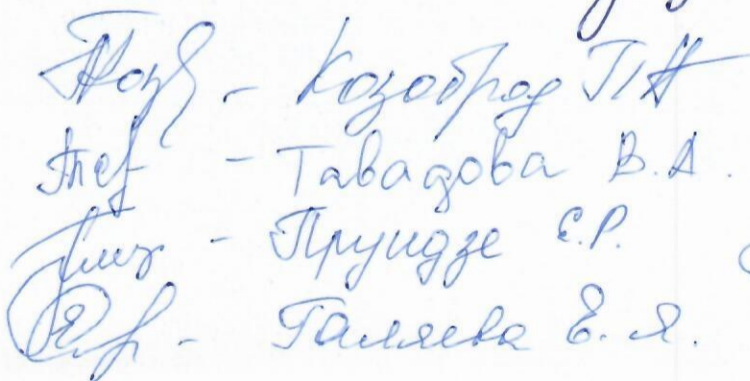 - Козоброд П Н
- Тавадова В. А.
- Пруидзе Е.Р.
- Галяева Е. Я.